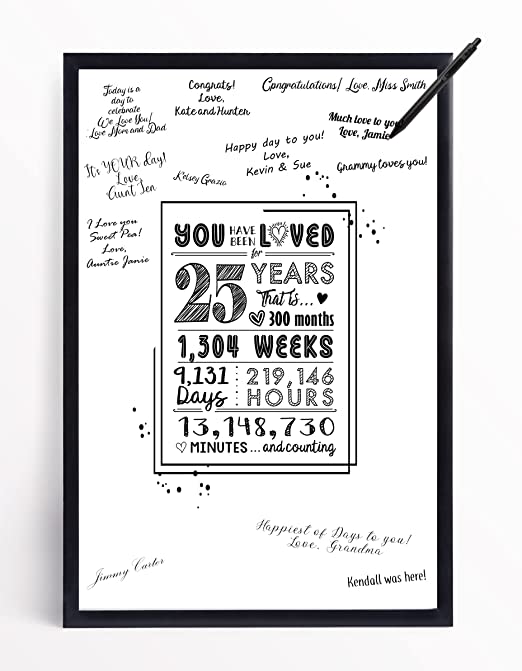 Today is a
day to
celebrate
We Love You!
Love Mom and Dad
Congrats!
Love,
Kate and Hunter
Congratulations! Love, Miss Smith
Much love to you
Love, Jamie
Happy day to you!
Love,
Kevin & Sue
Grammy loves you!
It's YOUR day!
Love,
Aunt Jen
Kelsey Grazia
I Love you
Sweet Pea!
Love,
Auntie Janie
YOU HAVE BEEN LOVED
for
25 YEARS
That is...
300 months
1,304 WEEKS
9,131 Days
219,146 HOURS
13,148,730
MINUTES ...and counting
Happiest of Days to you!
Love, Grandma
Jimmy Carter
Kendall was here!